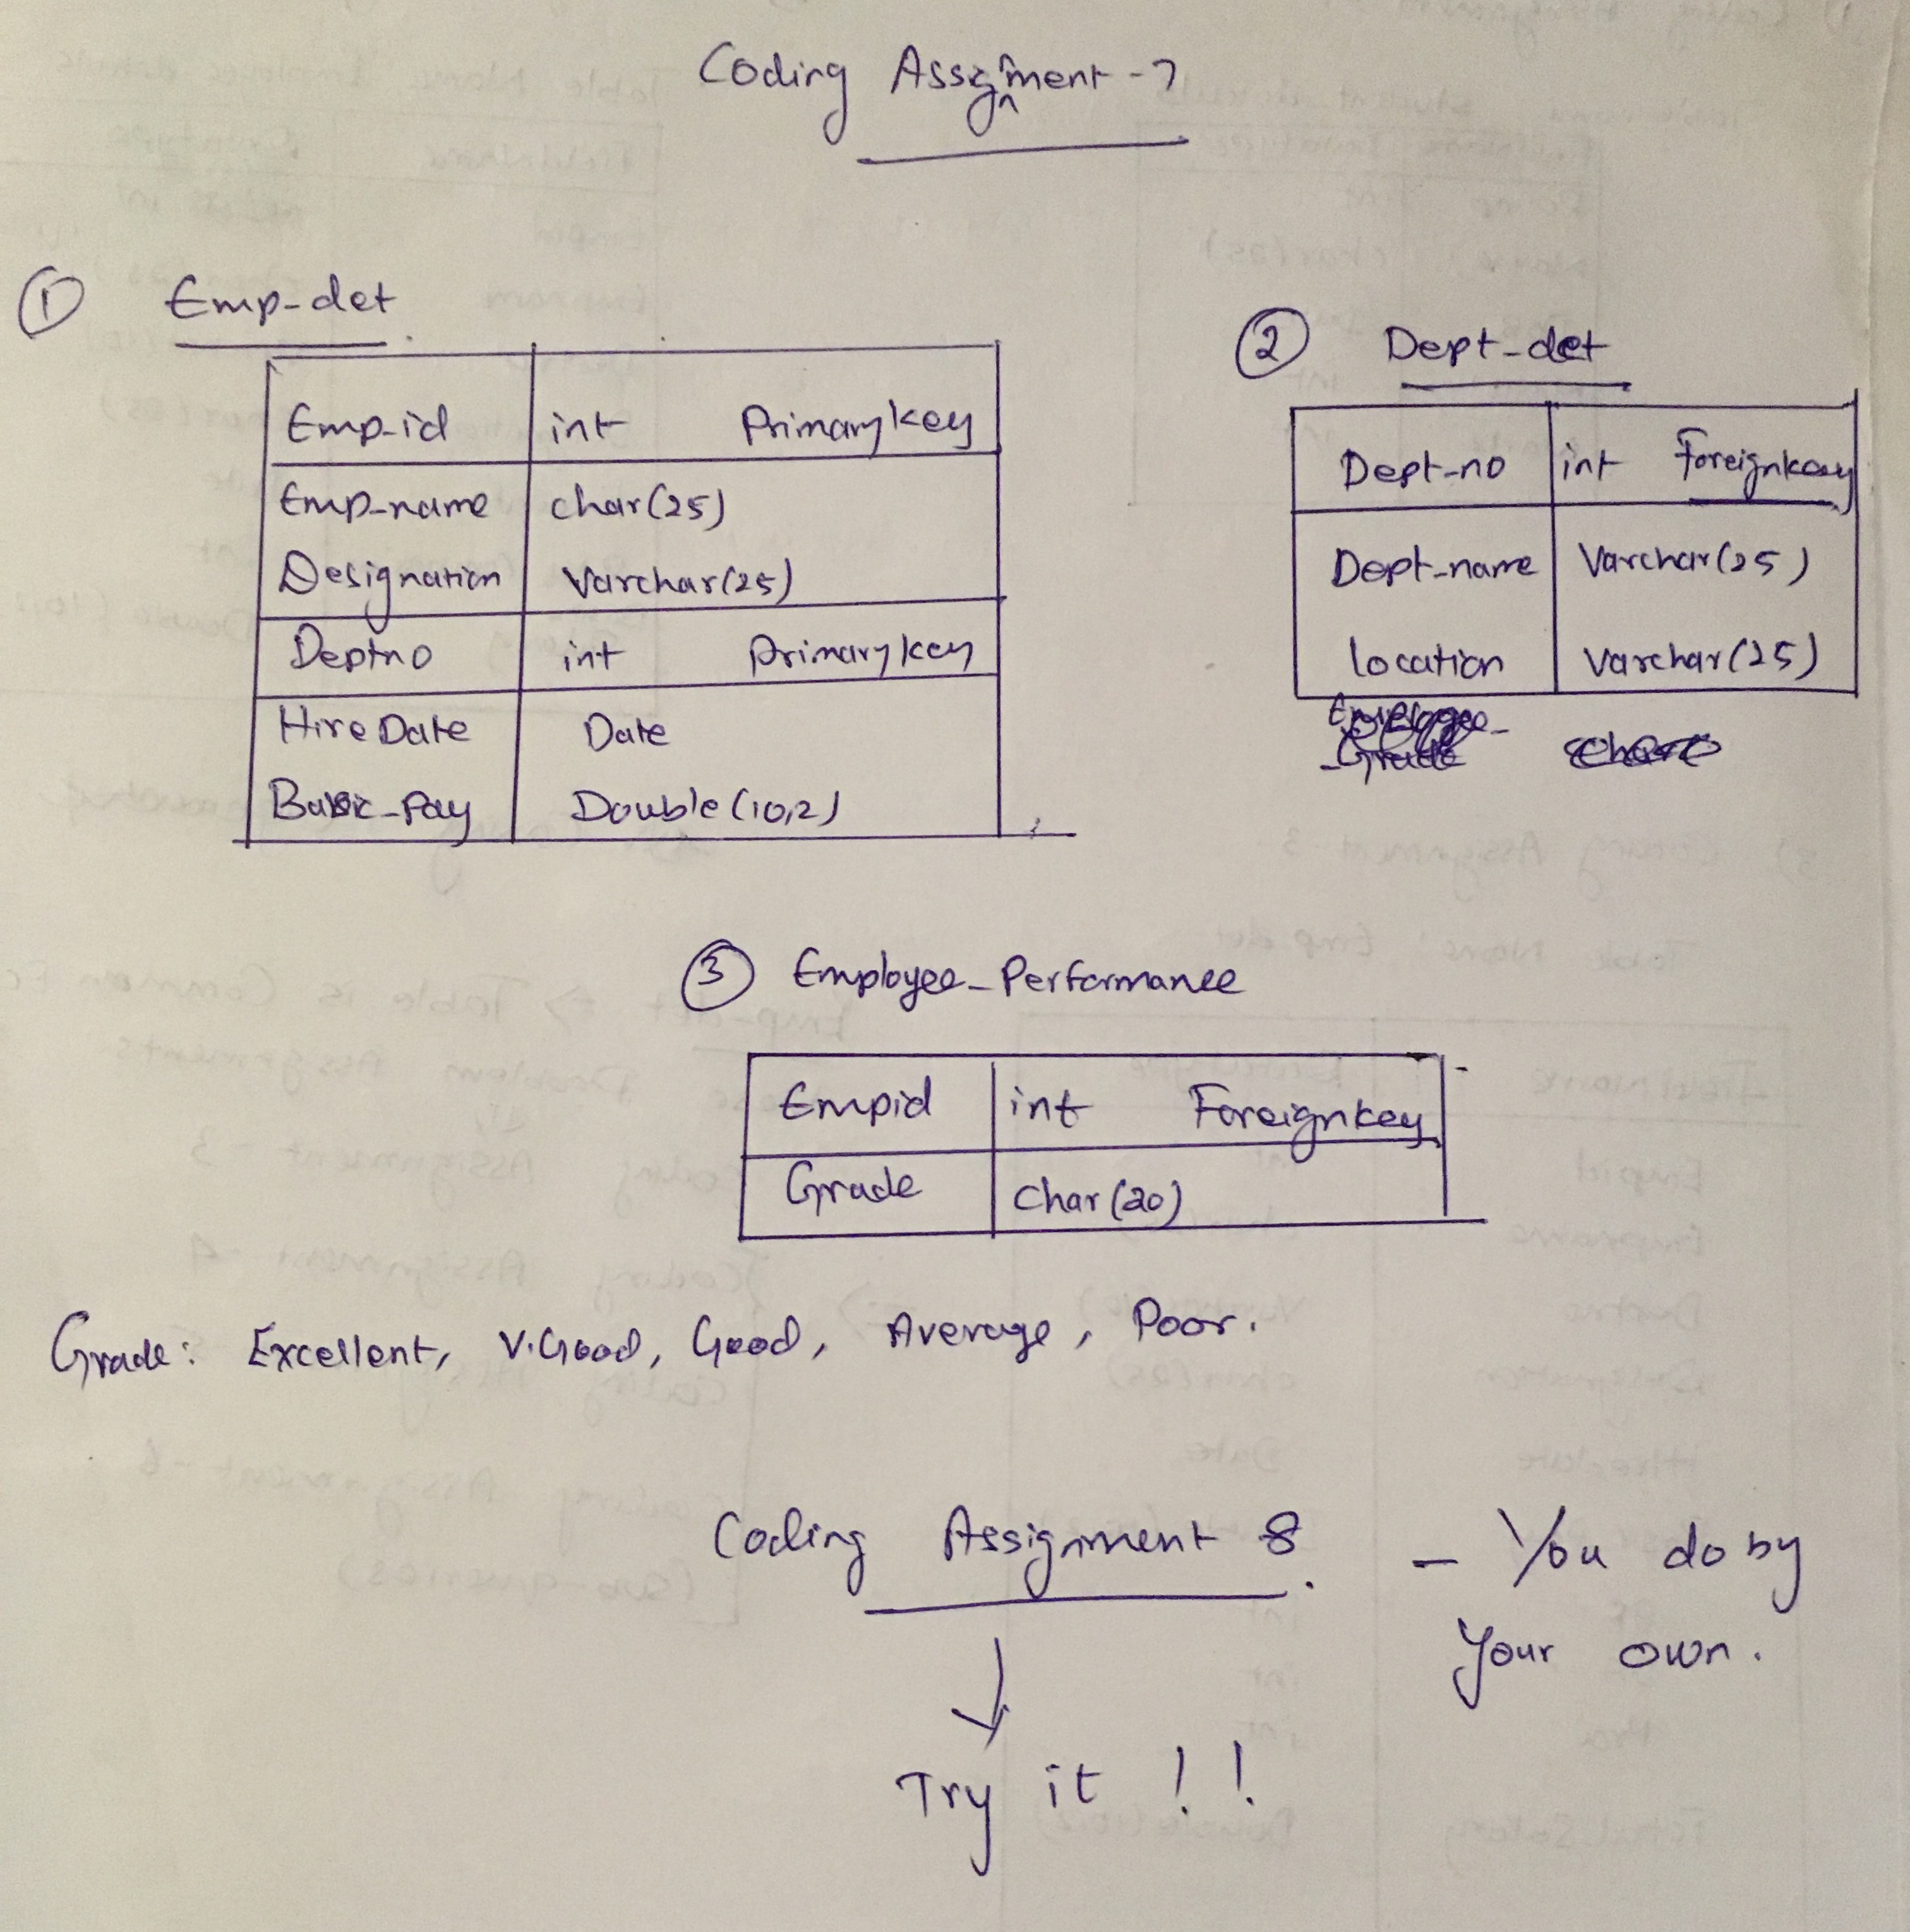 Coding Assignment -7
① Emp-det
Emp-id int Primarykey
Emp-name char(25)
Designation Varchar(25)
Deptno int Primarykey
Hire Date Date
Basic-Pay Double (10,2)
② Dept-det
Dept-no int Foreignkey
Dept-name Varchar(25)
location Varchar(25)
③ Employee-Performance
Empid int Foreignkey
Grade Char(20)
Grade: Excellent, V.Good, Good, Average, Poor.
Coding Assignment 8. - You do by
your own.
Try it !!